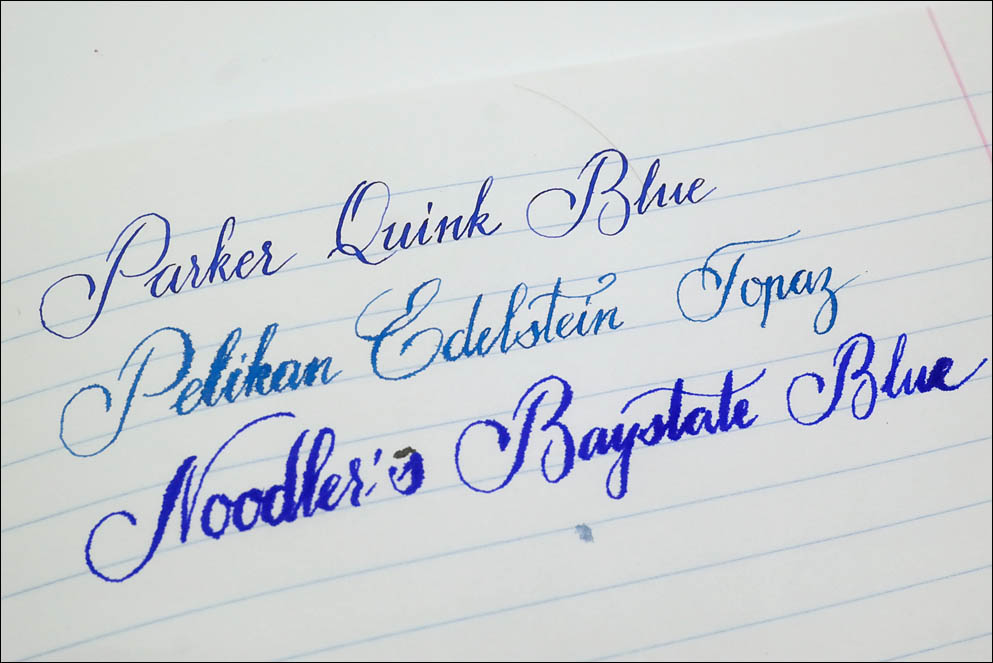 Parker Quink Blue
Pelikan Edelstein Topaz
Noodler's Baystate Blue